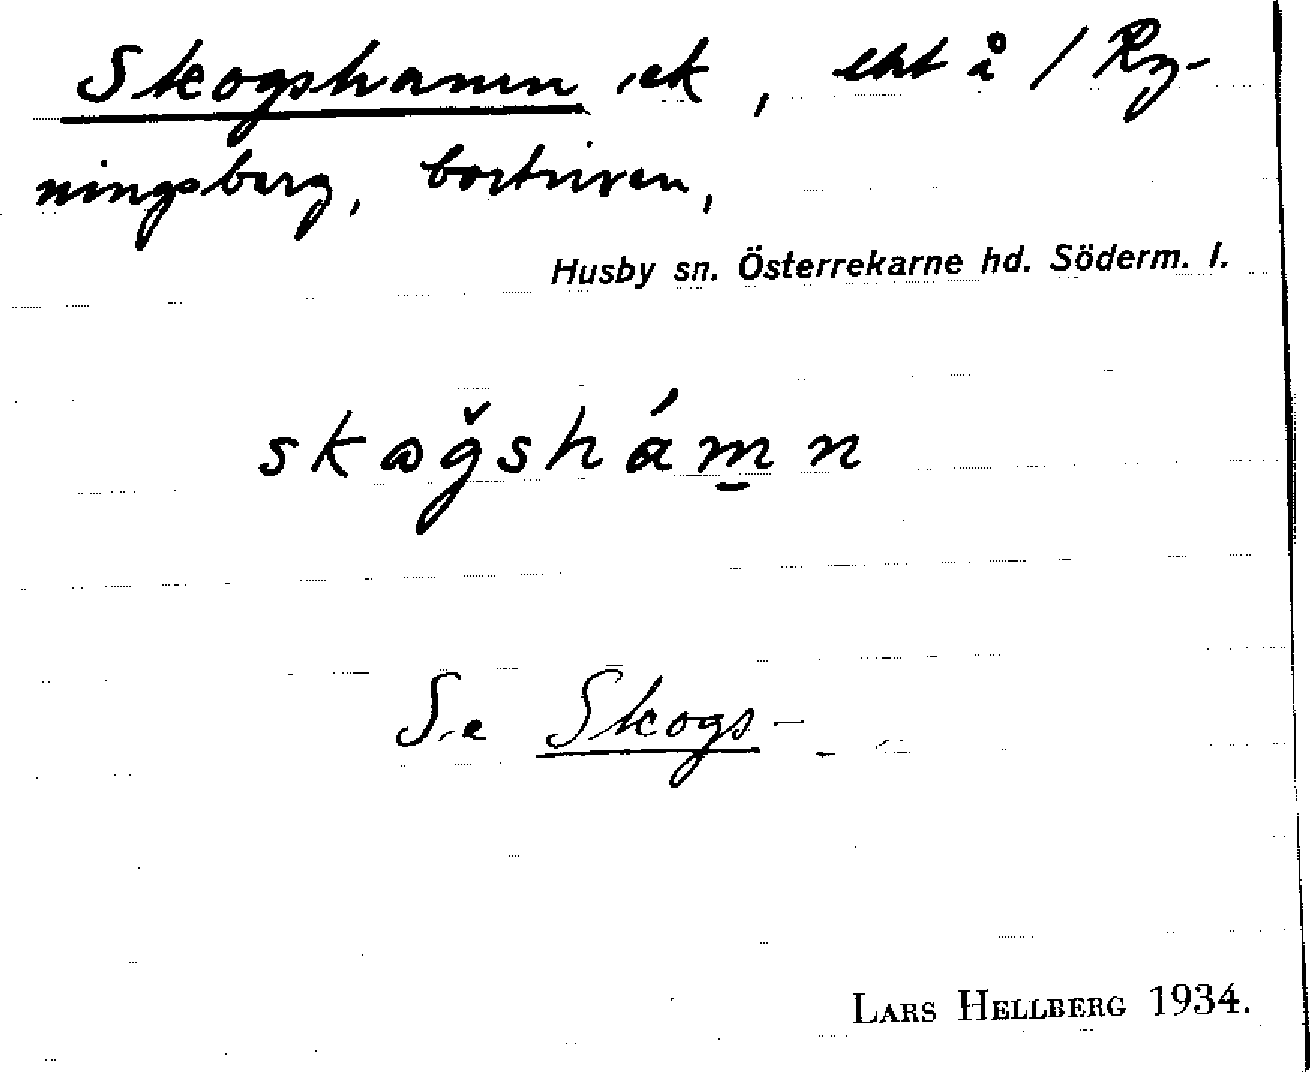 Skogshamn ek, ekt å / Ry-
ningsberg, bortriven,
Husby sn. Österrekarne hd. Söderm. l.
skꞷğshám̱n
Se Skogs-
LARS HELLBERG 1934.